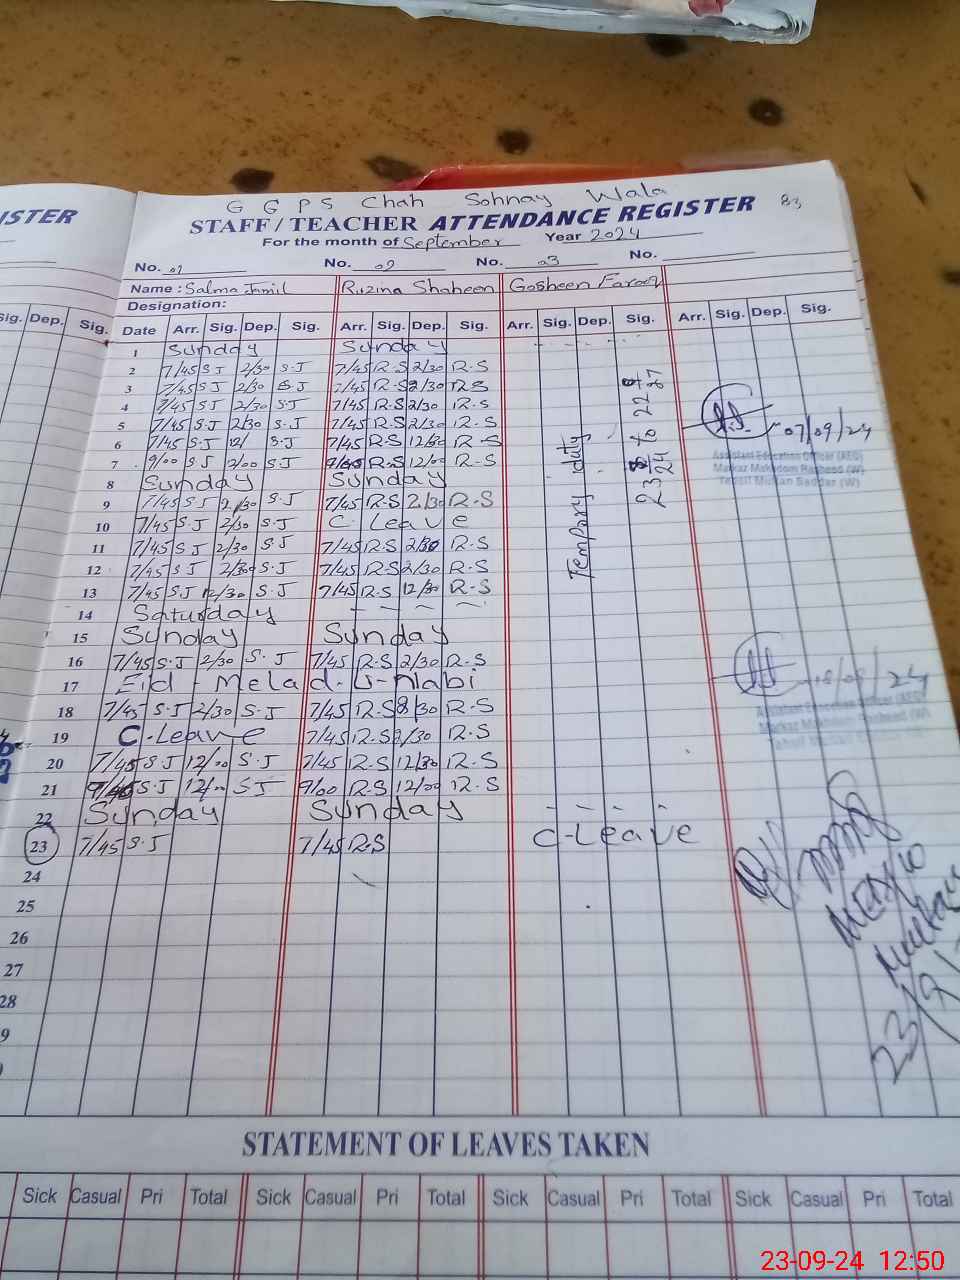 ISTER
G G P S Chah Sohnay Wala 83
STAFF/TEACHER ATTENDANCE REGISTER
For the month of September Year 2024
No. 01 No. 02 No. 03 No.
Name: Salma Jamil Ruzina Shaheen Gosheen Farooq
Designation:
Sig. Dep. Sig. Date Arr. Sig. Dep. Sig. Arr. Sig. Dep. Sig. Arr. Sig. Dep. Sig. Arr. Sig. Dep. Sig.
1 Sunday Sunday
2 7/45 S J 2/30 S.J 7/45 R.S 2/30 R.S
3 7/45 S J 2/30 S.J 7/45 R.S 2/30 R.S
4 7/45 S.J 2/30 S.J 7/45 R.S 2/30 R.S
5 7/45 S.J 2/30 S.J 7/45 R.S 2/30 R.S
6 7/45 S.J 12/ S.J 7/45 R.S 12/30 R.S
7 9/00 S.J 2/00 S.J R.S 12/00 R.S
8 Sunday Sunday
9 7/45 S.J 2/30 S.J 7/45 R.S 2/30 R.S
10 7/45 S.J 2/30 S.J C. Leave
11 7/45 S J 2/30 S.J 7/45 R.S 2/30 R.S
12 7/45 S.J 2/30 S.J 7/45 R.S 2/30 R.S
13 7/45 S.J 12/30 S.J 7/45 R.S 12/30 R.S
14 Saturday
15 Sunday Sunday
16 7/45 S.J 2/30 S.J 7/45 R.S 2/30 R.S
17 Eid - Melad-U-Nabi
18 7/45 S.J 2/30 S.J 7/45 R.S 2/30 R.S
19 C.Leave 7/45 R.S 2/30 R.S
20 7/45 S.J 12/00 S.J 7/45 R.S 12/30 R.S
21 9/ S.J 12/00 S J 9/00 R.S 12/00 R.S
22 Sunday Sunday
23 7/45 S.J 7/45 R.S C-Leave
24
25
26
27
28
9
Temprary duty
to
07/09/24
Assistant Education Officer (AEO)
Markaz Makhdom Rasheed (W)
Tehsil Multan Saddar (W)
18/09/24
Assistant Education Officer (AEO)
Markaz Makhdom Rasheed (W)
23/9/
STATEMENT OF LEAVES TAKEN
Sick Casual Pri Total Sick Casual Pri Total Sick Casual Pri Total Sick Casual Pri Total
23-09-24 12:50